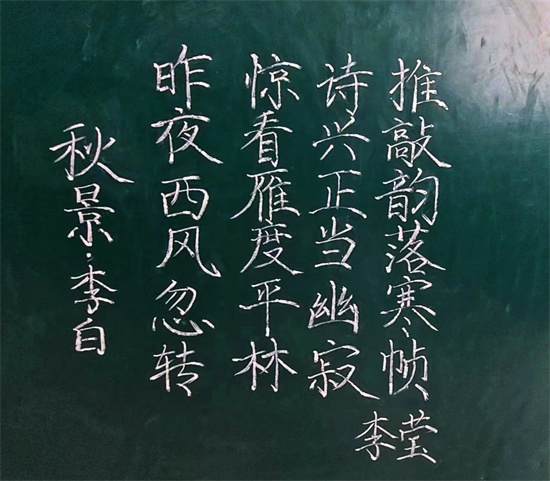 秋景：李白
昨夜西风忽转
惊看雁度平林
诗兴正当幽寂
推敲韵落寒帧
李莹